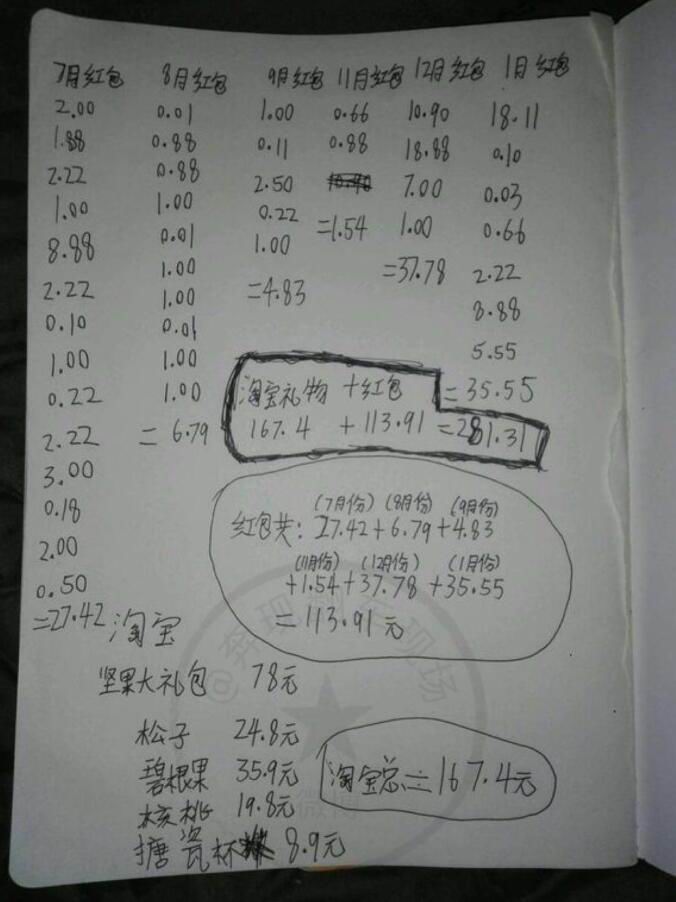 7月红包 8月红包 9月红包 11月红包 12月红包 1月红包
2.00 0.01 1.00 0.66 10.90 18.11
1.88 0.88 0.11 0.88 18.88 0.10
2.22 0.88 2.50 7.00 0.03
1.00 1.00 0.22 =1.54 1.00 0.66
8.88 0.01 1.00 =37.78 2.22
2.22 1.00 =4.83 8.88
0.10 1.00 5.55
1.00 0.01 =35.55
0.22 1.00
2.22 1.00
3.00 =6.79
0.18
2.00
0.50
=27.42
淘宝礼物 +红包
167.4 +113.91 =281.31
(7月份) (8月份) (9月份)
红包共: 27.42+6.79+4.83
(11月份) (12月份) (1月份)
+1.54+37.78 +35.55
=113.91元
淘宝
坚果大礼包 78元
松子 24.8元
碧根果 35.9元
核桃 19.8元
搪瓷杯 8.9元
淘宝总:=167.4元